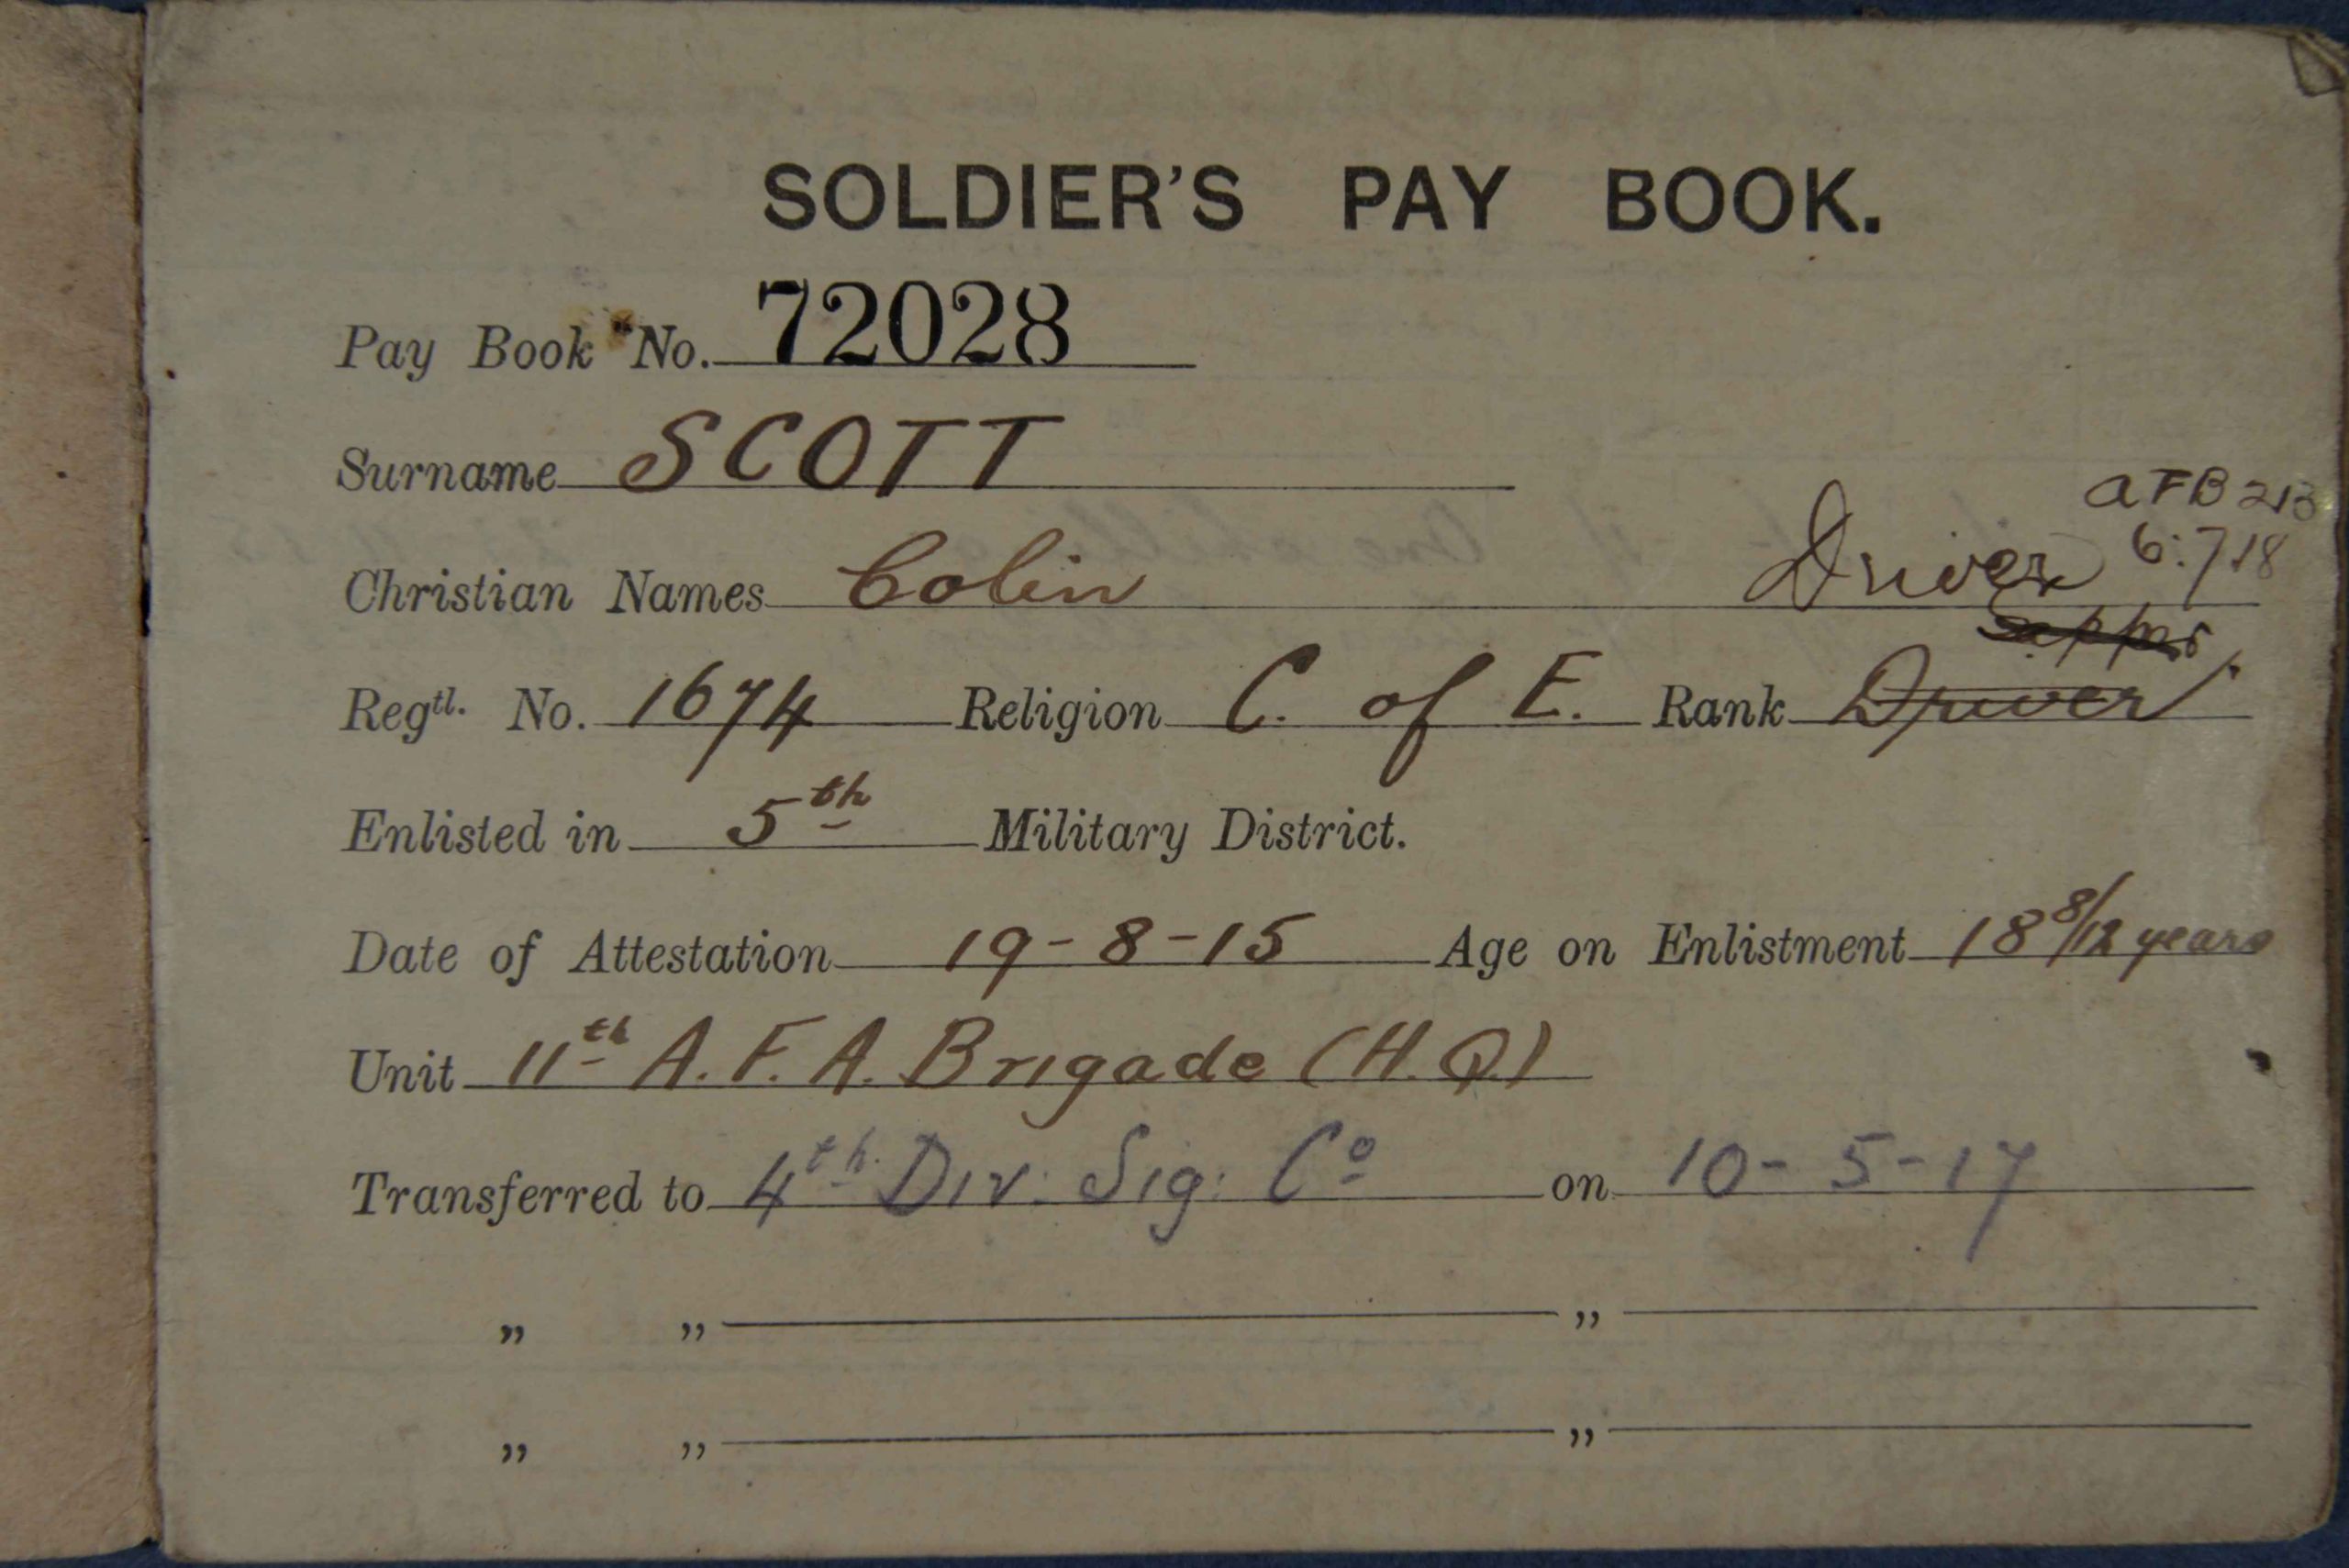 SOLDIER'S PAY BOOK.
Pay Book No. 72028
Surname SCOTT
AFB 213
Christian Names Colin Driver 6:7.18
Sapper
Regtl. No. 1674 Religion C. of E. Rank Driver
Enlisted in 5th Military District.
Date of Attestation 19-8-15 Age on Enlistment 18 8/12 years
Unit 11th A. F. A. Brigade (H.Q.)
Transferred to 4th Div: Sig: Co on 10-5-17
„ „ „
„ „ „